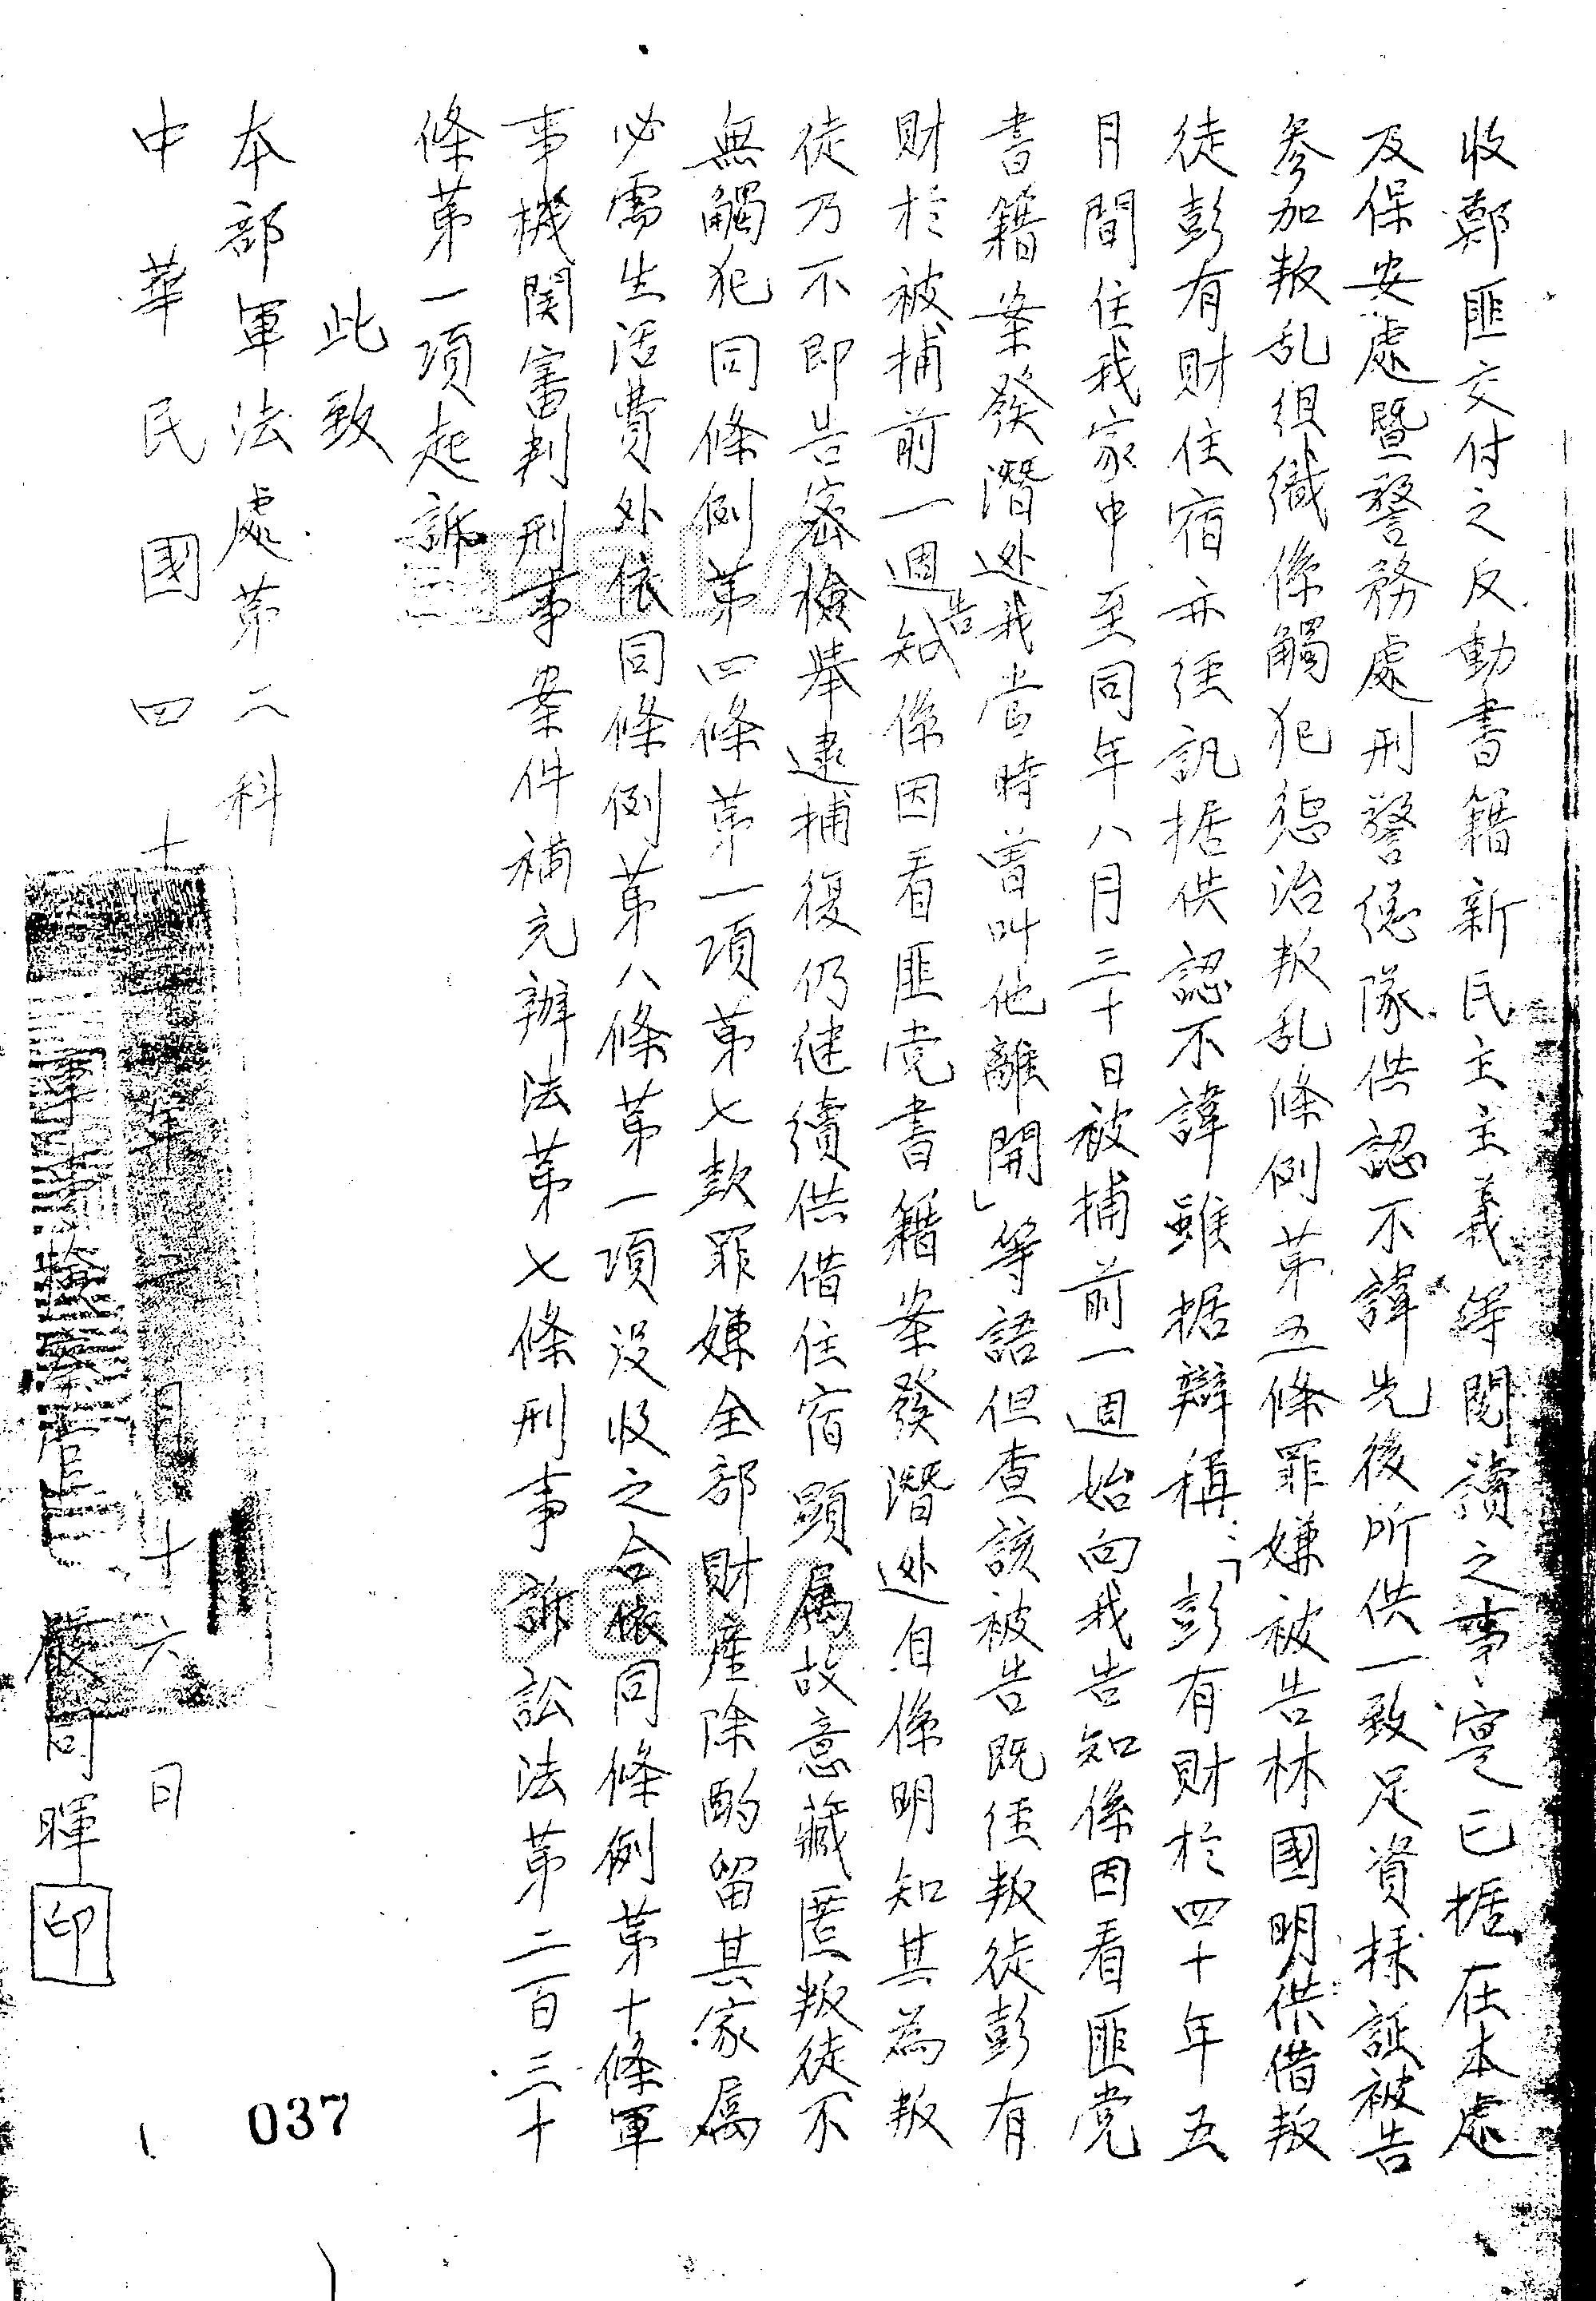 收鄭匪交付之反動書籍新民主主義等閱讀之事寔已据在本處
及保安處暨警務處刑警總隊供認不諱先後所供一致足資採証被告
參加叛乱组織係觸犯惩治叛乱條例第五條罪嫌被告林國明供借叛
徒彭有財住宿亦经訊据供認不諱雖据辯稱：「彭有財於四十年五
月間住我家中至同年八月三十日被捕前一週始向我告知係因看匪党
書籍案發潛逃我當時曽叫他離開」等語但查該被告既经叛徒彭有
財於被捕前一週告知係因看匪党書籍案發潛逃自係明知其為叛
徒乃不即告密檢舉逮捕復仍继續供借住宿顕属故意藏匿叛徒不
無觸犯同條例第四條第一項第七款罪嫌全部財產除酌留其家属
必需生活費外依同條例第八條第一項沒收之合依同條例第十條軍
事機関審判刑事案件補充辦法第七條刑事訴訟法第二百三十
條第一項起訴
此致
本部軍法處第二科
中華民國四十一年二月十六日
軍事檢察官 嚴同暉 印
037